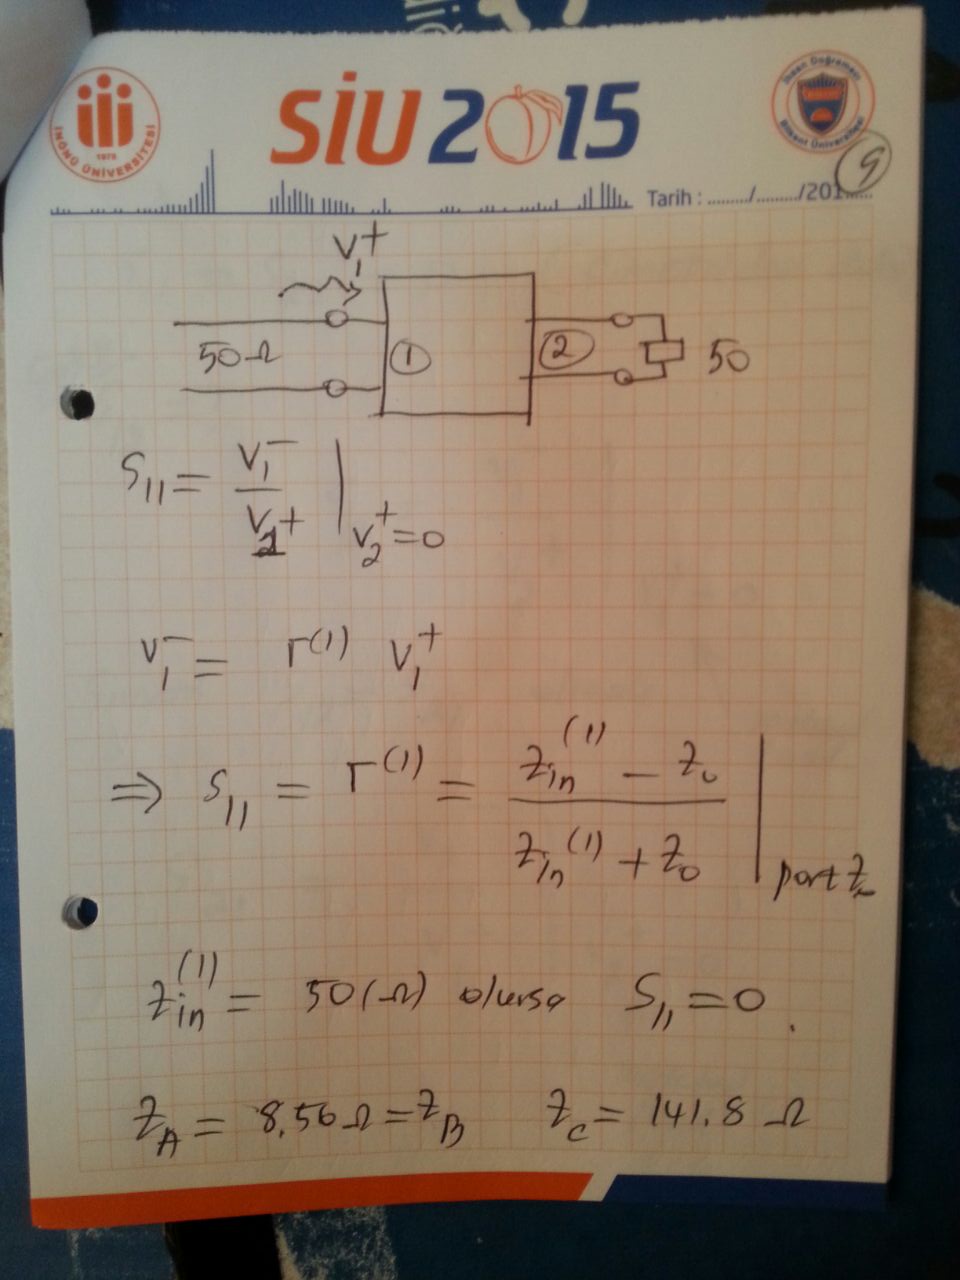 SİU 2015
İNÖNÜ ÜNİVERSİTESİ
1975
İhsan Doğramacı
Bilkent Üniversitesi
9
Tarih : ........./........./201......
V₁⁺
50Ω ① ② 50
S₁₁ = V₁⁻ / V₁⁺ | V₂⁺=0
V₁⁻ = Γ⁽¹⁾ V₁⁺
⇒ S₁₁ = Γ⁽¹⁾ = Zin⁽¹⁾ − Z₀ / Zin⁽¹⁾ + Z₀ | port 2
Zin⁽¹⁾ = 50(Ω) olursa S₁₁ = 0.
Z_A = 8.56Ω = Z_B Z_C = 141.8 Ω